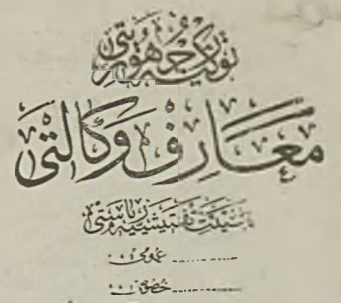 توركيه جمهوريتى
معارف وكالتى
هيئت تفتيشيه رياستى
عمومى
خصوصى